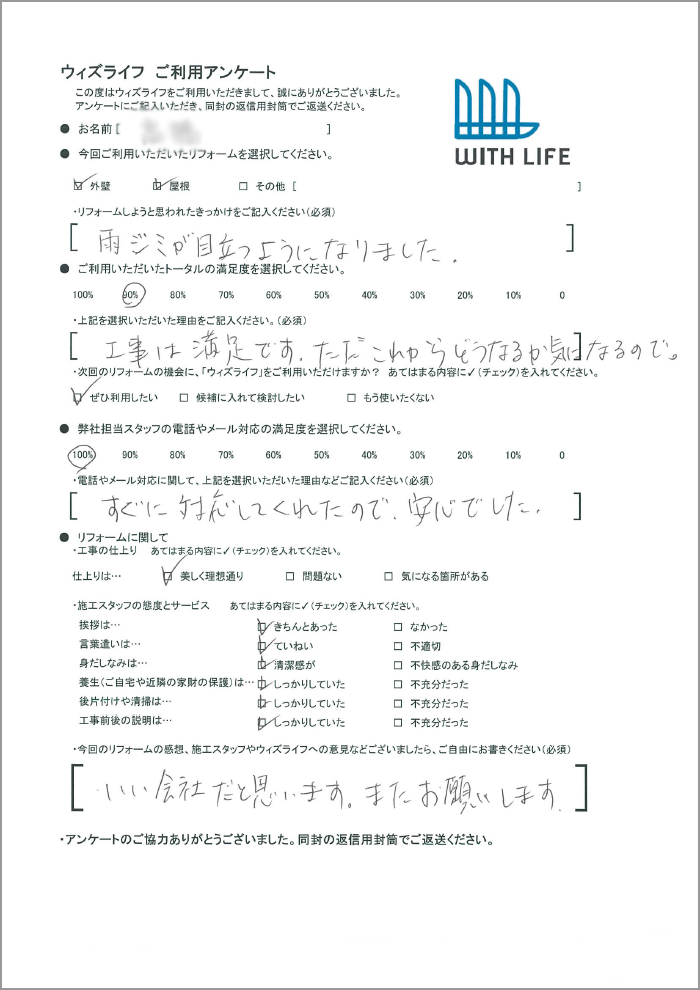 ウィズライフ ご利用アンケート
この度はウィズライフをご利用いただきまして、誠にありがとうございました。
アンケートにご記入いただき、同封の返信用封筒でご返送ください。
WITH LIFE
● お名前 [ ]
● 今回ご利用いただいたリフォームを選択してください。
☑ 外壁 ☑ 屋根 □ その他 [ ]
・リフォームしようと思われたきっかけをご記入ください(必須)
[ 雨ジミが目立つようになりました。 ]
● ご利用いただいたトータルの満足度を選択してください。
100% 90% 80% 70% 60% 50% 40% 30% 20% 10% 0
・上記を選択いただいた理由をご記入ください。(必須)
[ 工事は満足です。ただこれからどうなるか気になるので。 ]
・次回のリフォームの機会に、「ウィズライフ」をご利用いただけますか? あてはまる内容に✓(チェック)を入れてください。
☑ ぜひ利用したい □ 候補に入れて検討したい □ もう使いたくない
● 弊社担当スタッフの電話やメール対応の満足度を選択してください。
100% 90% 80% 70% 60% 50% 40% 30% 20% 10% 0
・電話やメール対応に関して、上記を選択いただいた理由などご記入ください(必須)
[ すぐに対応してくれたので、安心でした。 ]
● リフォームに関して
・工事の仕上り あてはまる内容に✓(チェック)を入れてください。
仕上りは… ☑ 美しく理想通り □ 問題ない □ 気になる箇所がある
・施工スタッフの態度とサービス あてはまる内容に✓(チェック)を入れてください。
挨拶は… ☑ きちんとあった □ なかった
言葉遣いは… ☑ ていねい □ 不適切
身だしなみは… ☑ 清潔感が □ 不快感のある身だしなみ
養生(ご自宅や近隣の家財の保護)は… ☑ しっかりしていた □ 不充分だった
後片付けや清掃は… ☑ しっかりしていた □ 不充分だった
工事前後の説明は… ☑ しっかりしていた □ 不充分だった
・今回のリフォームの感想、施工スタッフやウィズライフへの意見などございましたら、ご自由にお書きください(必須)
[ いい会社だと思います。またお願いします。 ]
・アンケートのご協力ありがとうございました。同封の返信用封筒でご返送ください。